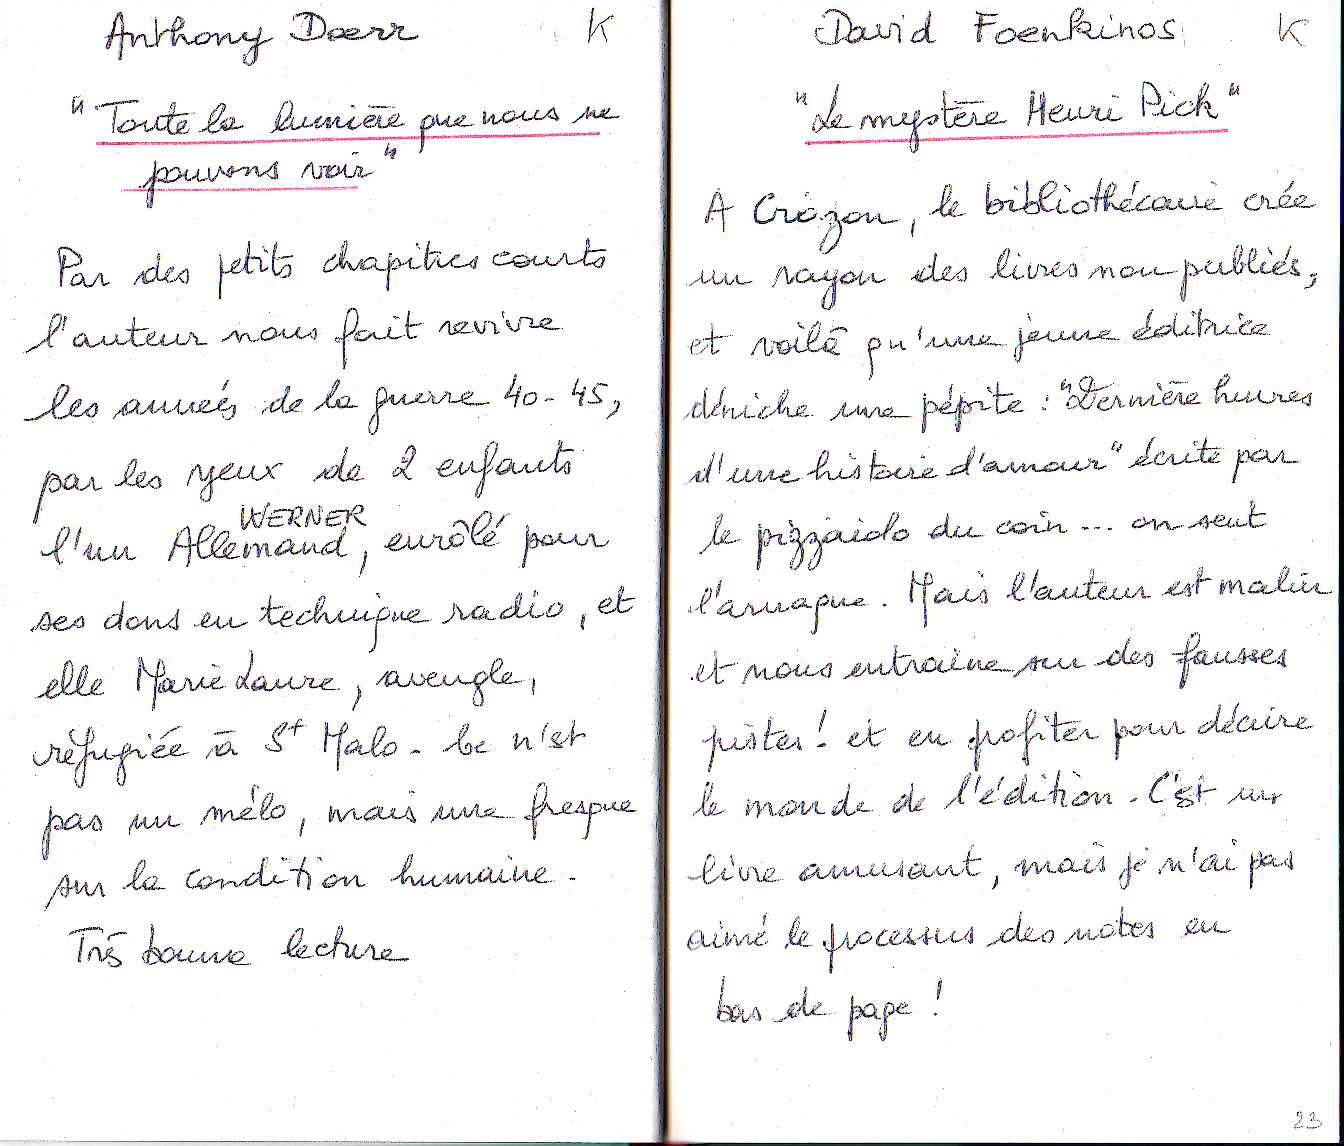 Anthony Doerr K
"Toute la lumière que nous ne
pouvons voir"
Par des petits chapitres courts
l'auteur nous fait revivre
les années de la guerre 40-45,
par les yeux de 2 enfants
WERNER
l'un Allemand, enrôlé pour
ses dons en technique radio, et
elle Marie Laure, aveugle,
réfugiée à St Malo - Ce n'est
pas un mélo, mais une fresque
sur la condition humaine -
Très bonne lecture
David Foenkinos K
"Le mystère Henri Pick"
A Crozon, le bibliothécaire crée
un rayon des livres non publiés,
et voilà qu'une jeune éditrice
déniche une pépite : "Dernière heures
d'une histoire d'amour" écrite par
le pizzaiolo du coin ... on sent
l'arnaque. Mais l'auteur est malin
et nous entraine sur des fausses
pistes ! et en profiter pour décrire
le monde de l'édition - C'est un
livre amusant, mais je n'ai pas
aimé le processus des notes en
bas de page !
23